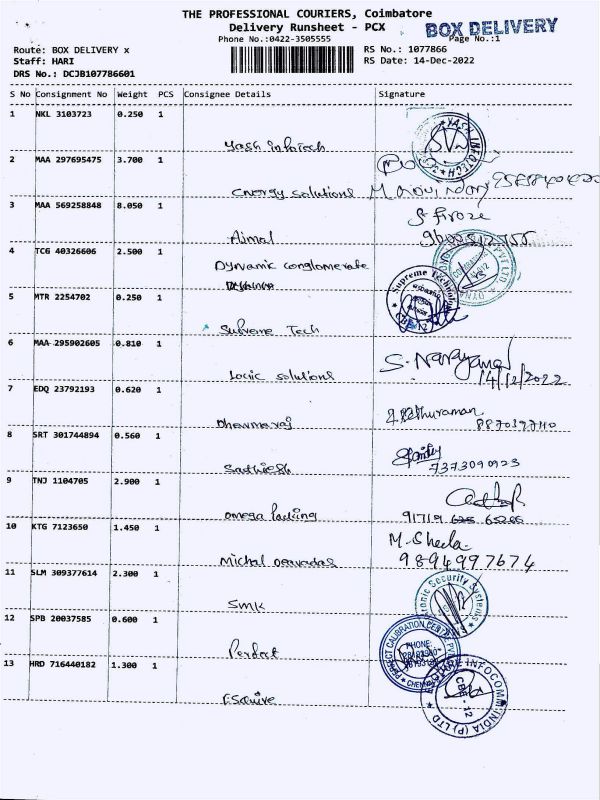 THE PROFESSIONAL COURIERS, Coimbatore
Delivery Runsheet - PCX
BOX DELIVERY
Phone No.:0422-3505555
Page No.:1
Route: BOX DELIVERY x
RS No.: 1077866
Staff: HARI
RS Date: 14-Dec-2022
DRS No.: DCJB107786601
S No Consignment No Weight PCS Consignee Details Signature
1 NKL 3103723 0.250 1
Yash Infotech
YASH INFOTECH
2 MAA 297695475 3.700 1
Energy solutions
3 MAA 569258848 8.050 1
S. Firoze
Ajmal
4 TCG 40326606 2.500 1
Dynamic conglomerate
5 MTR 2254702 0.250 1
Supreme Tech
6 MAA 295902605 0.810 1
S. Narayanan
Logic solutions 14/12/2022
7 EDQ 23792193 0.620 1
Dharmaraj
8870397110
8 SRT 301744894 0.560 1
Sathiesh
7373090923
9 TNJ 1104705 2.900 1
Omega Packing
10 KTG 7123650 1.450 1
M. Sheela
Michal
9894997674
11 SLM 309377614 2.300 1
SMK
Security Systems
12 SPB 20037585 0.600 1
Perfect
PERFECT CALIBRATION
PHONE:
CHENNAI
13 HRD 716440182 1.300 1
Esquire
INFOCOMM INDIA (P) LTD
CBE - 12